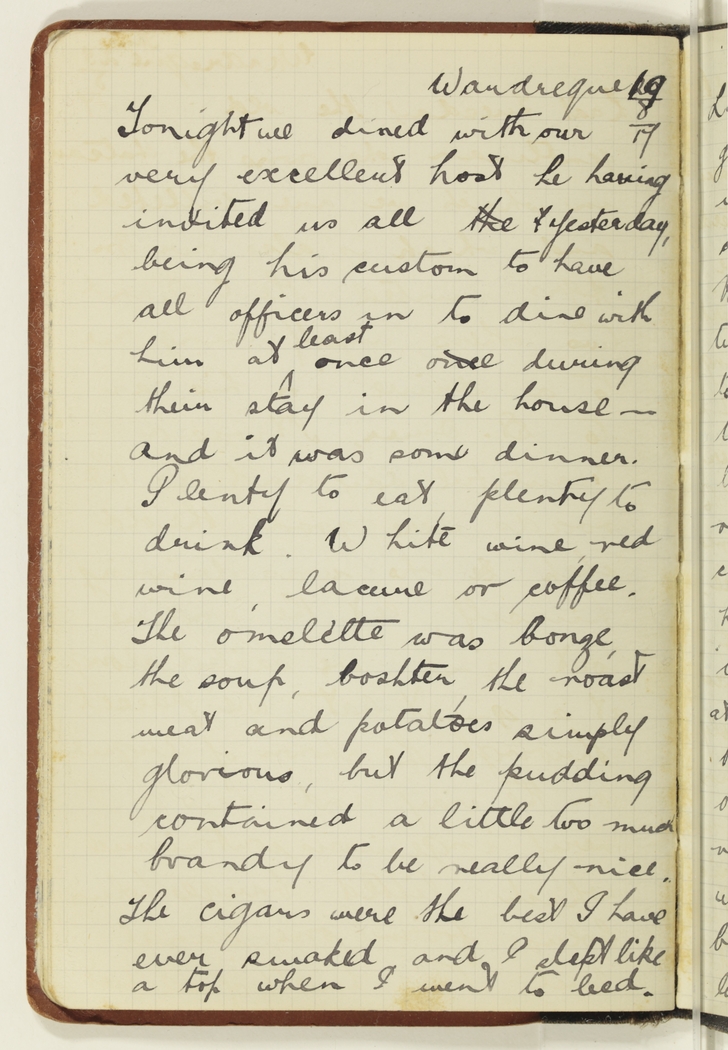 Wardreques 19
8
17
Tonight we dined with our
very excellent host he having
invited us all the & yesterday,
being his custom to have
all officers in to dine with
him at least once once during
their stay in the house —
and it was some dinner.
Plenty to eat, plenty to
drink. White wine, red
wine, or coffee.
The omelette was bonze,
the soup, boshter, the roast
meat and potatoes simply
glorious, but the pudding
contained a little too much
brandy to be really nice.
The cigars were the best I have
ever smoked, and I slept like
a top when I went to bed.